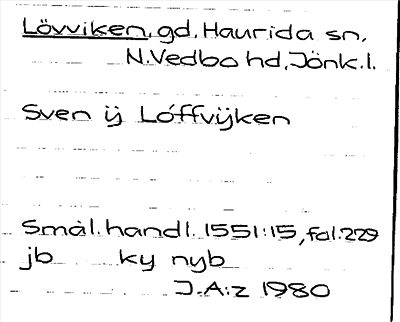 Lövviken, gd, Haurida sn,
N.Vedbo hd, Jönk.l.
Sven ÿ Lóffvÿken
Smål.handl. 1551:15, fol.229
jb ky nyb
J.A:z 1980